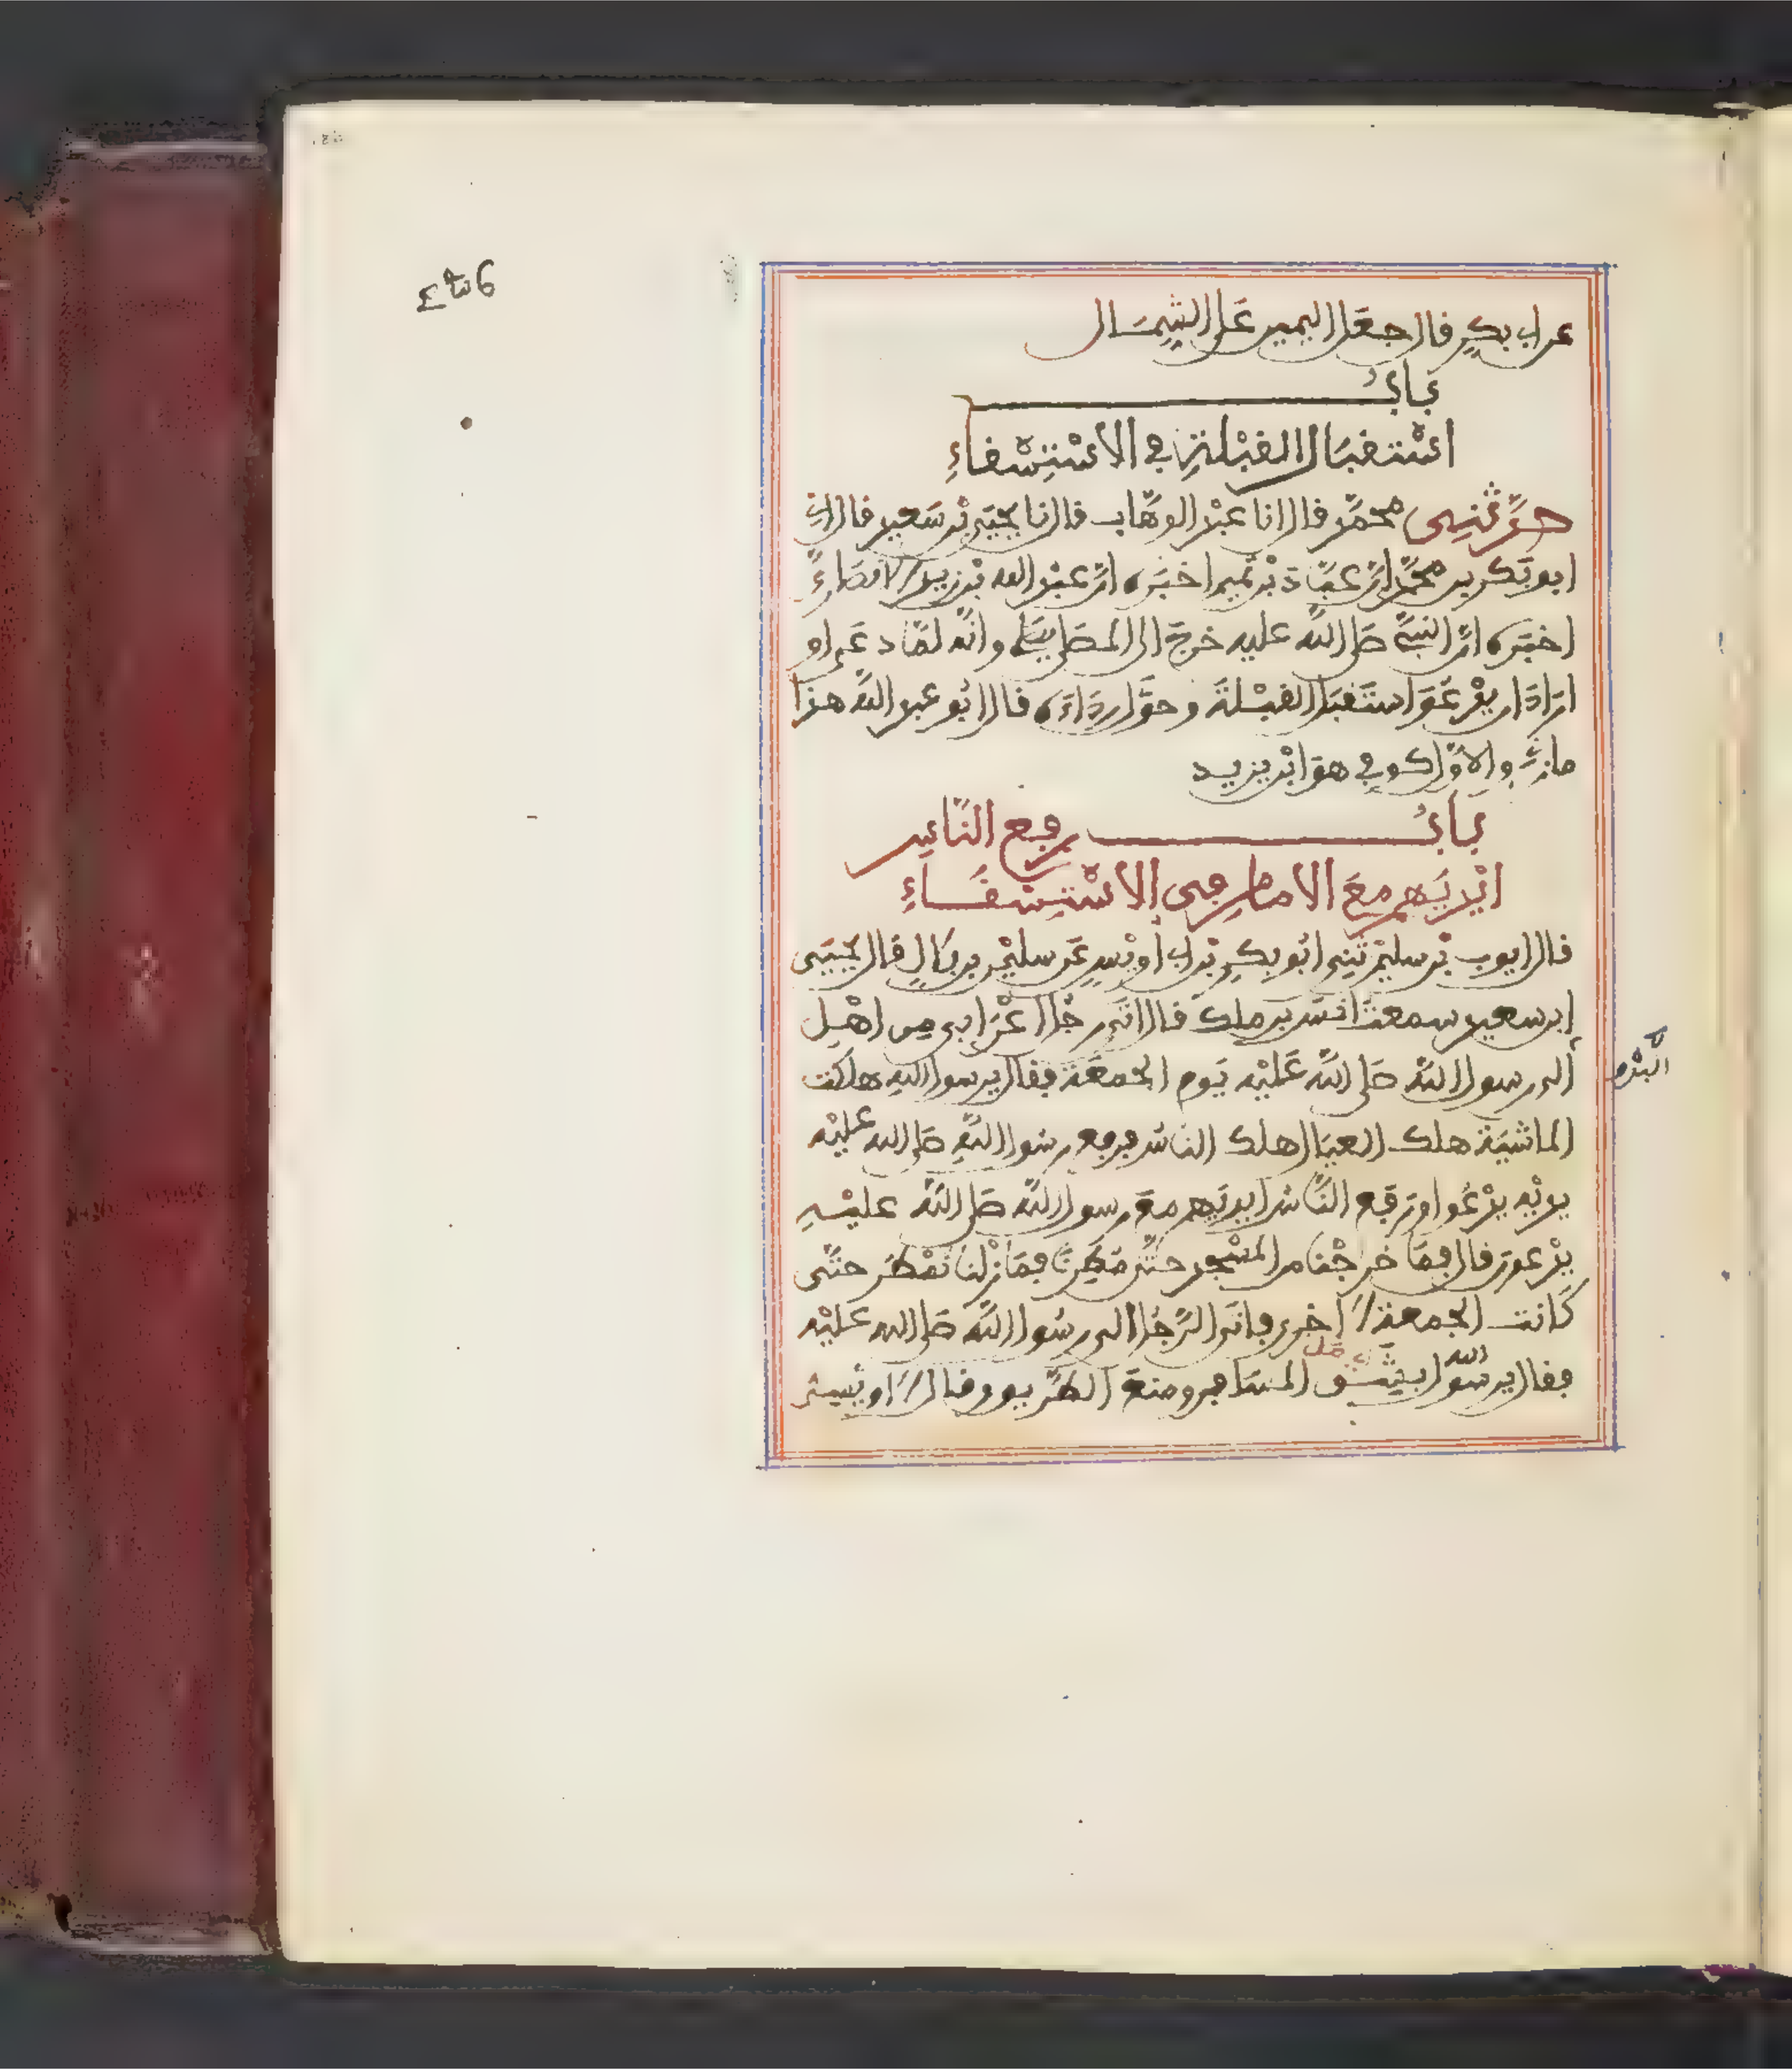 عن ابي بكر قال جعل اليمين على الشمال
باب
استقبال القبلة في الاستسقاء
حدثني محمد قال انا عبد الوهاب قال نا يحيى بن سعيد قال اني
ابو بكر بن محمد ان عباد بن تميم اخبره ان عبد الله بن زيد الانصاري
اخبره ان النبي صلى الله عليه خرج الى المصلى يصلي وانه لما دعى او
اراد ان يدعو استقبل القبلة وحول رداءه قال ابو عبد الله هذا
مازني والاول كوفي هو ابن يزيد
باب رفع الناس
ايديهم مع الامام في الاستسقاء
قال ايوب بن سليمن ثني ابو بكر بن ابي اويس عن سليمن بن بلال قال يحيى
ابن سعيد سمعت انس بن ملك قال اتى رجل اعرابي من اهل
البدو
الى رسول الله صلى الله عليه يوم الجمعة فقال يرسول الله هلكت
الماشية هلك العيال هلك الناس فرفع رسول الله صلى الله عليه
يديه يدعوا ورفع الناس ايديهم مع رسول الله صلى الله عليه
يدعون قال فما خرجنا من المسجد حتى مطرنا فما زلنا نمطر حتى
كانت الجمعة الاخرى فاتى الرجل الى رسول الله صلى الله عليه
فقال يرسول الله بشق المسافر ومنع الطريق وقال الاويسي